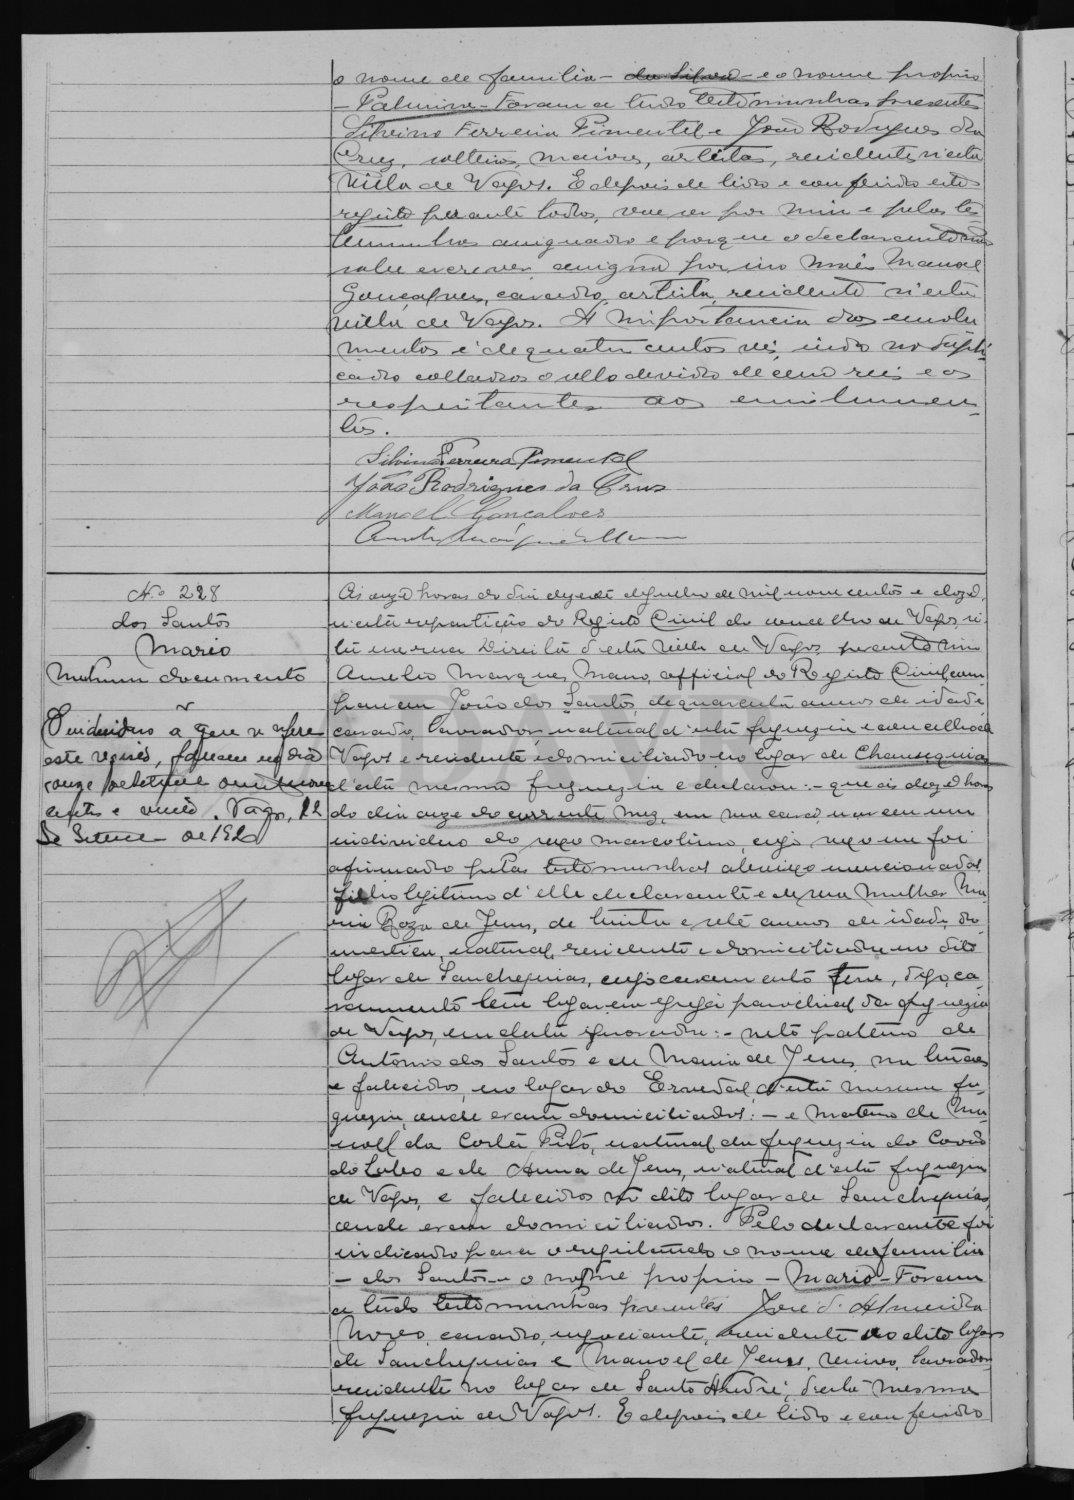 o nome de familia - da Silva - e o nome proprio
- Palmira - Foram a tudo testimunhas presentes
Silvino Ferreira Pimentel e João Rodrigues da
Cruz, solteiros, maiores, artistas, residentes n'esta
Villa de Vagos. E depois de lido e conferido este
registo perante todos, vae ser por mim e pelas tes
timunhas assignado e porque o declarante não
sabe escrever assigna por isso Manoel
Gonçalves, casado, artista, residente n'esta
villa de Vagos. A importancia dos emolu
mentos é de quatro centos reis, indo no dupli-
cado collados o sello devido de cem reis e os
respeitantes aos emolumen-
tos.
Silvino Ferreira Pimentel
João Rodrigues da Cruz
Manoel Gonçalves
Nº 228
dos Santos
Mario
Nenhum documento
O individuo a que se refere
este registo, faleceu no dia
onze
Vagos, 12
de de 192
Ás onze horas do dia de Julho de mil nove centos e doze,
n'esta repartição do Registo Civil do concelho de Vagos, si-
ta na rua Direita d'esta Villa de Vagos, perante mim
Amelio Marques Mano, official do Registo Civil, com-
pareceu João dos Santos, de quarenta annos de idade
casado, lavrador, natural d'esta freguezia e concelho de
Vagos e residente e domiciliado no logar de Chansequias
d'esta mesma freguezia e declarou: - que ás doze horas
do dia onze do corrente mez, em sua casa, nasceu um
individuo do sexo masculino, cujo sexo me foi
afirmado pelas testimunhas abaixo mencionadas
filho legitimo d'elle declarante e de sua mulher Ma
ria Roza de Jesus, de trinta e sete annos de idade, do
mestica, natural, residente e domiciliada no dito
logar de Sanchequias, cujo casamento teve, digo, ca
samento teve logar em egreja parochial da freguezia
de Vagos, em data ignorada: - neto paterno de
Antonio dos Santos e de Maria de Jesus,
e falecidos, no logar do Ervedal, d'esta mesma fre
guezia, onde eram domiciliados: - e materno de Ma
noel da Costa Pito, natural da freguezia do Covão
do Lobo e de Anna de Jesus, natural d'esta freguezia
de Vagos, e falecidos no dito logar de Sanchequias,
onde eram domiciliados. Pelo declarante foi
indicado para o registando o nome de familia
- dos Santos - e o nome proprio - Mario - Foram
a tudo testimunhas presentes José d'Almeida
Novo, casado, negociante, residente no dito logar
de Sanchequias e Manoel de Jesus, viuvo, lavrador,
residente no logar de Santo André, d'esta mesma
freguezia de Vagos. E depois de lido e conferido